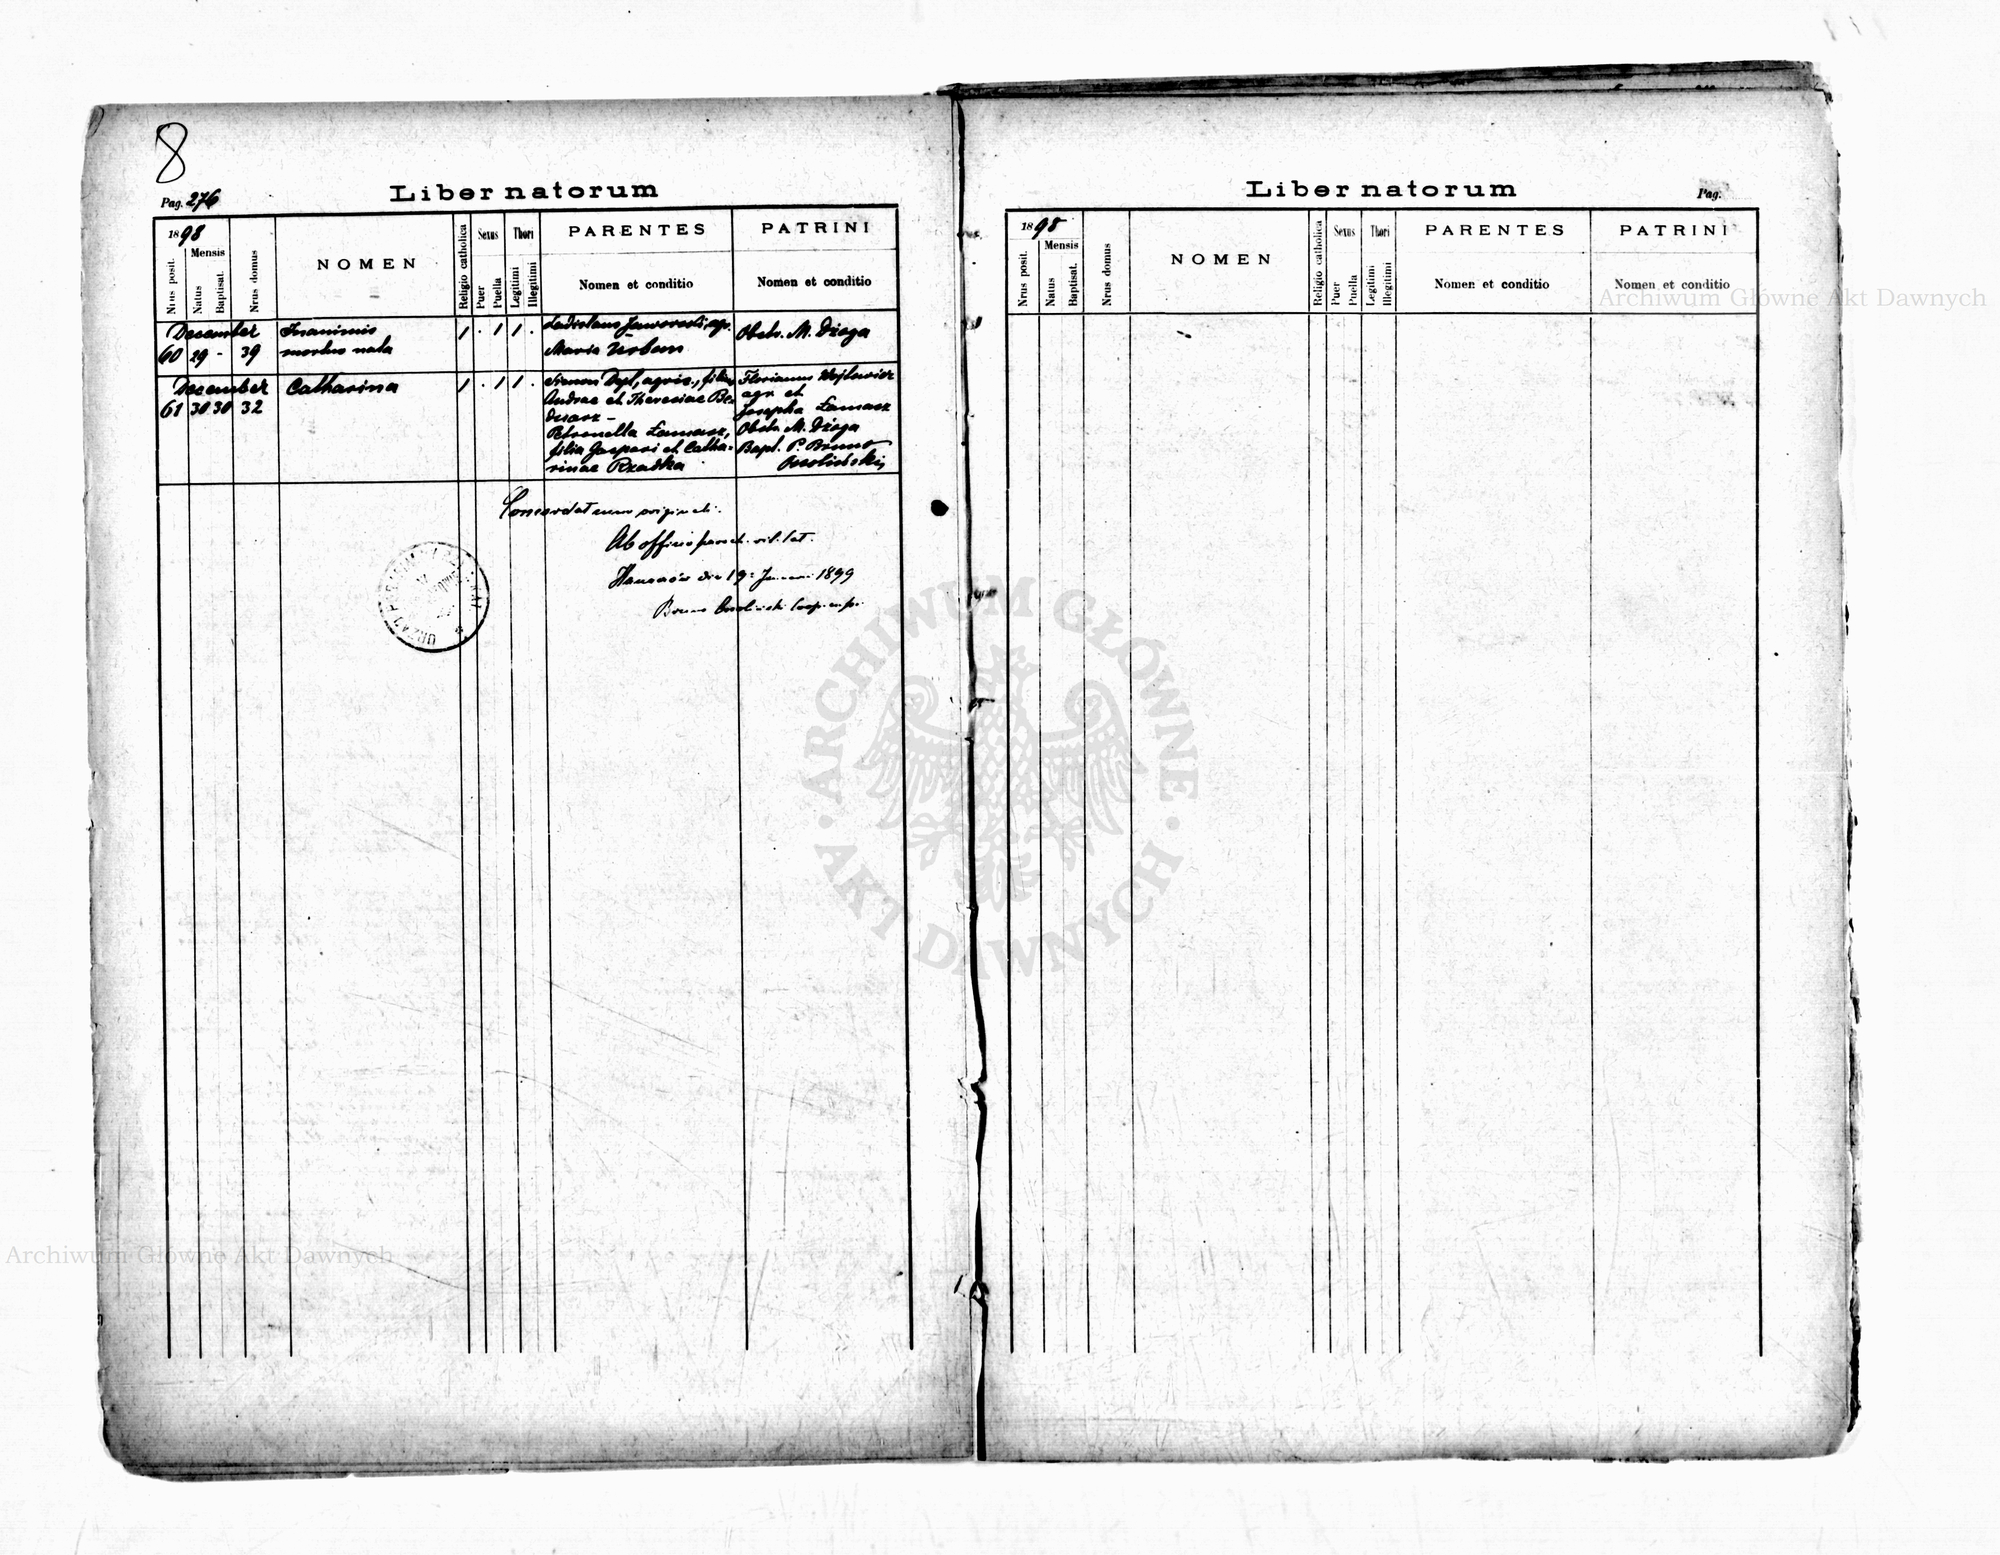 8
Pag. 276
Liber natorum
1898
Nrus posit.
Mensis
Natus
Baptisat.
Nrus domus
NOMEN
Religio catholica
Sexus
Puer
Puella
Thori
Legitimi
Illegitimi
PARENTES
Nomen et conditio
PATRINI
Nomen et conditio
December
60 29 - 39
Inanimis
mortuo nata
1 . 1 1 .
Ladislaus Jaworski, agr.
Maria Urban
Obstr. M. Dżoga
December
61 30 30 32
Catharina
1 . 1 1 .
Simon Dyl, agric., filius
Andreae et Theresiae Be-
dnarz -
Petronella Łamasz,
filia Gaspari et Catha-
rinae Rzadka
Florianus Wojtowicz
agr. et
Josepha Łamasz
Obstr. M. Dżoga
Bapt. P. Bruno
Ossoliński
Concordat cum originali.
Ab officio paroch. rit. lat.
Hanaczów die 19 1899
Bruno Ossoliński
Liber natorum
Pag.
1898
Nrus posit.
Mensis
Natus
Baptisat.
Nrus domus
NOMEN
Religio catholica
Sexus
Puer
Puella
Thori
Legitimi
Illegitimi
PARENTES
Nomen et conditio
PATRINI
Nomen et conditio
Archiwum Główne Akt Dawnych
ARCHIWUM GŁÓWNE
AKT DAWNYCH
Archiwum Główne Akt Dawnych